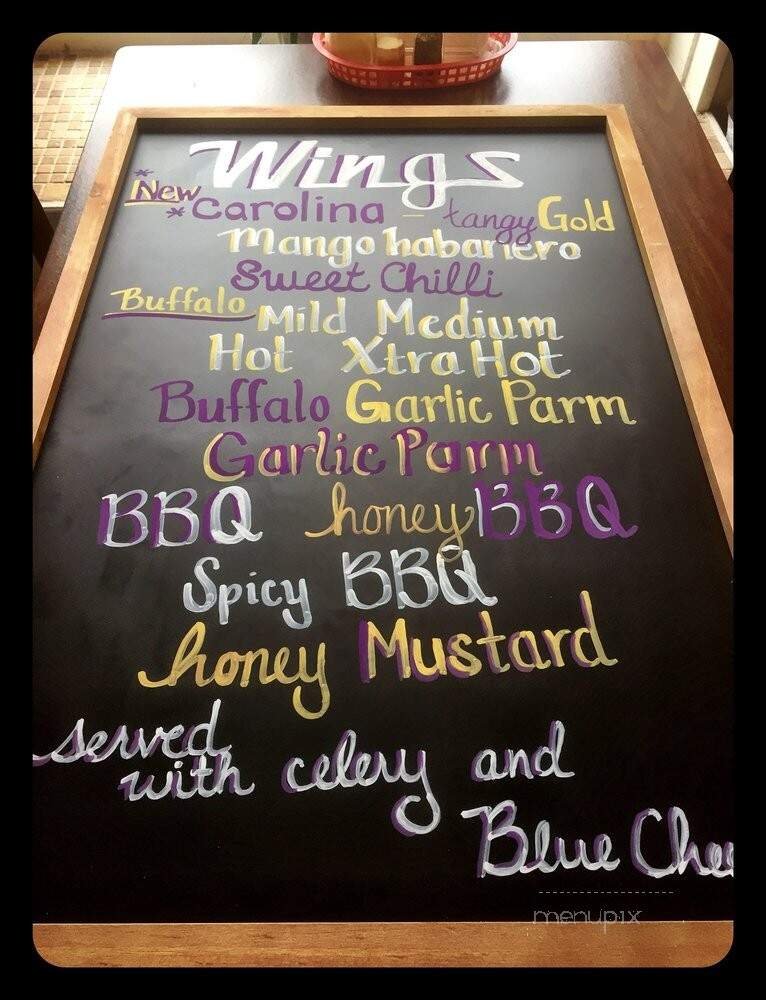 Wings
*New
*Carolina - tangy Gold
Mango habanero
Sweet Chilli
Buffalo Mild Medium
Hot Xtra Hot
Buffalo Garlic Parm
Garlic Parm
BBQ honey BBQ
Spicy BBQ
honey Mustard
served
with celery and
Blue Chee
menupix